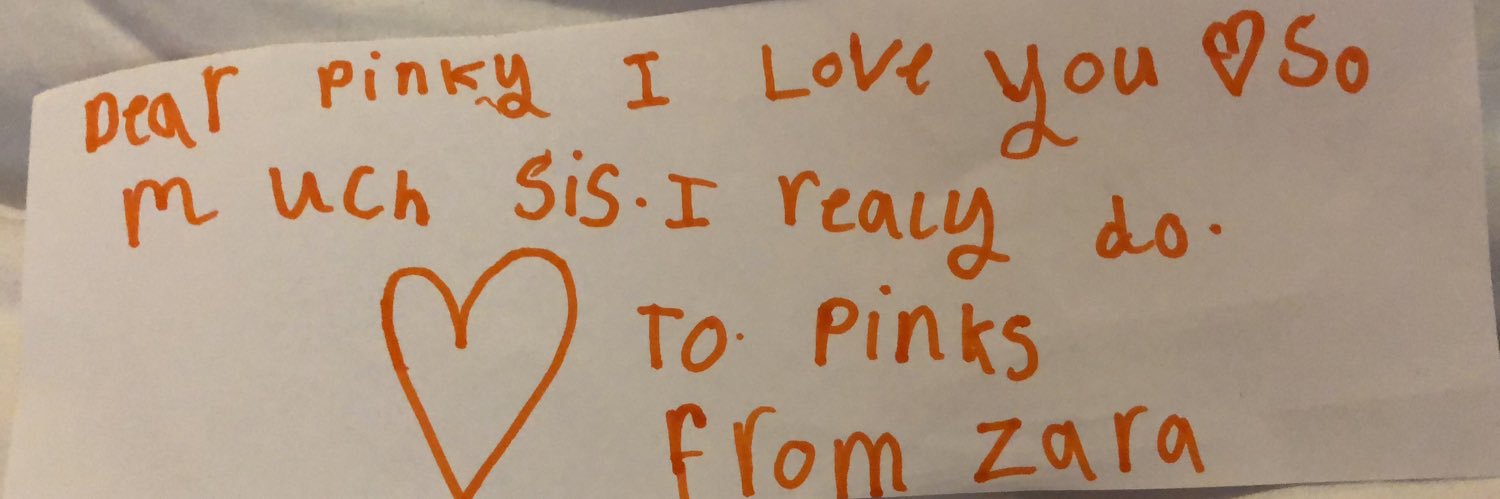 Dear pinky I Love you ♡ So
much sis. I realy do.
To. Pinks
From Zara